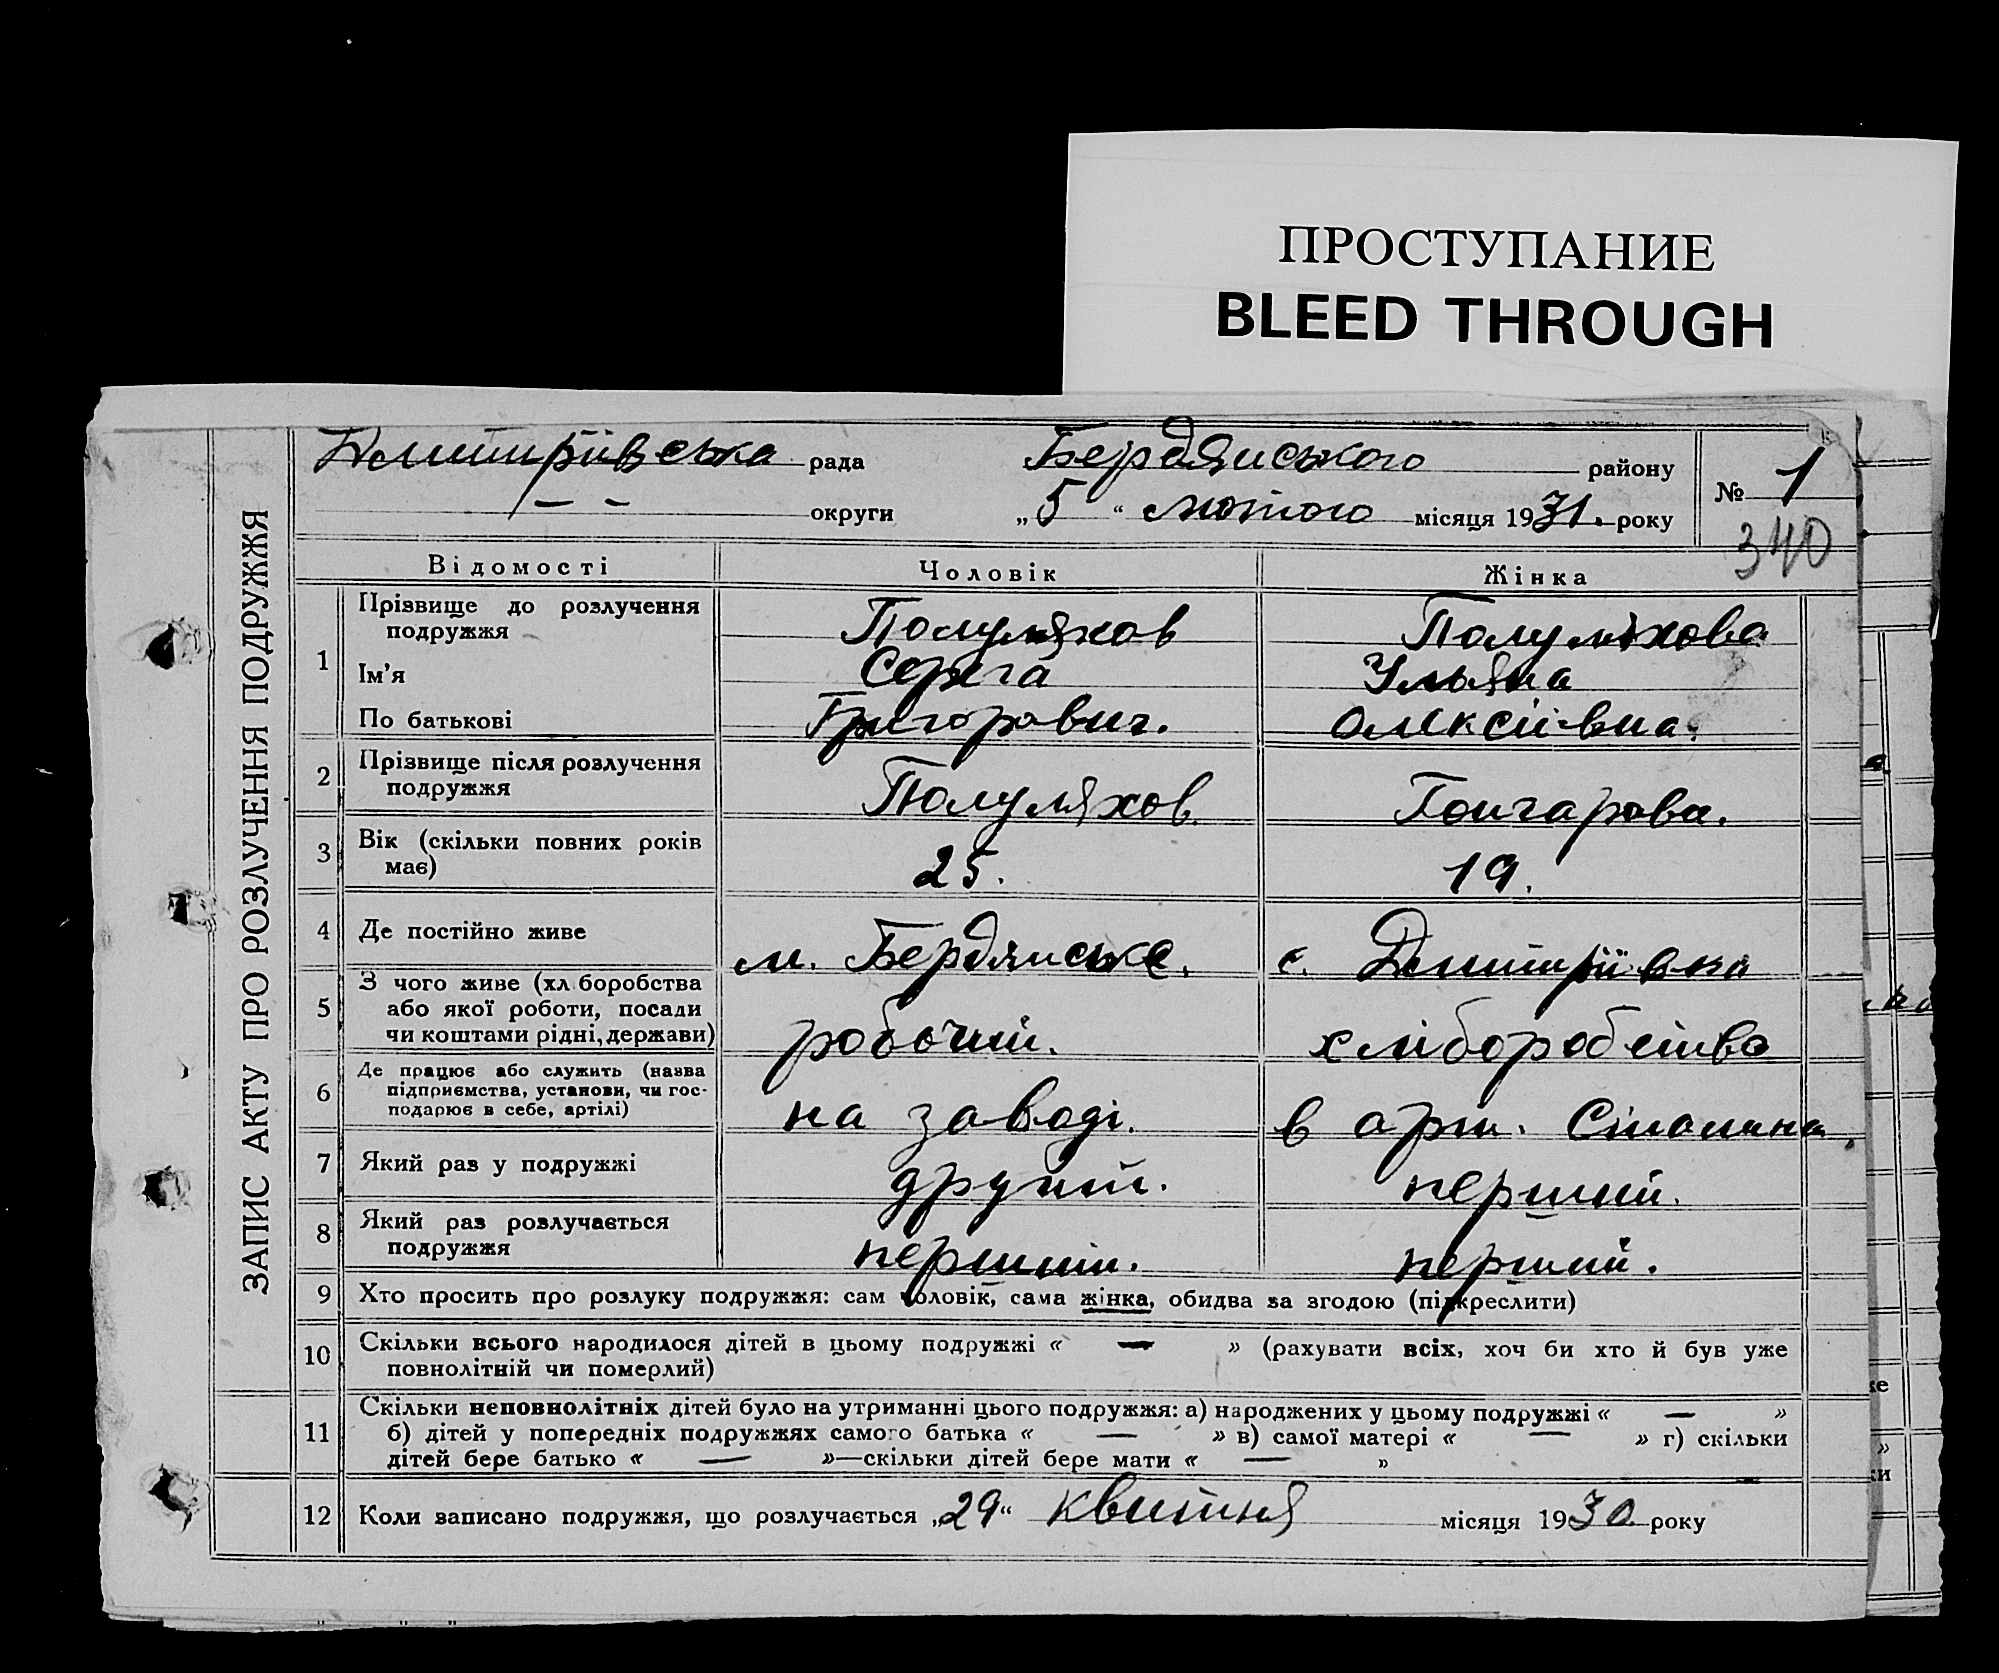 ПРОСТУПАНИЕ
BLEED THROUGH
Дмитріївська рада Бердянського району № 1
— — округи „5“ лютого місяця 1931. року
340
ЗАПИС АКТУ ПРО РОЗЛУЧЕННЯ ПОДРУЖЖЯ
Відомості Чоловік Жінка
1 Прізвище до розлучення подружжя Полуляхов Полуляхова
Ім'я Серга Ульяна
По батькові Григорович. Олексіївна.
2 Прізвище після розлучення подружжя Полуляхов. Гончарова.
3 Вік (скільки повних років має) 25. 19.
4 Де постійно живе м. Бердянське. с. Дмитріївка
5 З чого живе (хл.боробства або якої роботи, посади чи коштами рідні, держави) робочий. хліборобство
6 Де працює або служить (назва підприємства, установи, чи господарює в себе, артілі) на заводі. в арт. Сталина.
7 Який раз у подружжі другий. перший.
8 Який раз розлучається подружжя перший. перший.
9 Хто просить про розлуку подружжя: сам чоловік, сама жінка, обидва за згодою (підкреслити)
10 Скільки всього народилося дітей в цьому подружжі « — » (рахувати всіх, хоч би хто й був уже
повнолітній чи померлий)
11 Скільки неповнолітніх дітей було на утриманні цього подружжя: а) народжених у цьому подружжі « — »
б) дітей у попередніх подружжях самого батька « — » в) самої матері « — » г) скільки
дітей бере батько « — »—скільки дітей бере мати « — »
12 Коли записано подружжя, що розлучається „29“ квитня місяця 1930 року